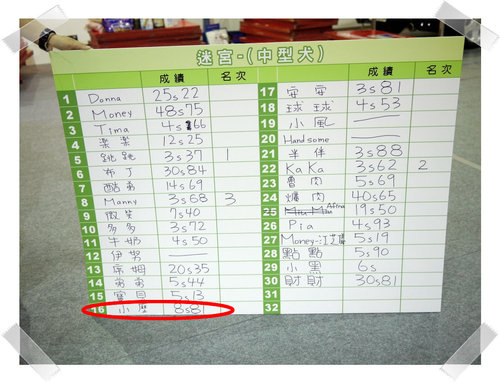 迷宮-(中型犬)
成績 名次
1 Donna 25s22
2 Money 48s75
3 Tima 4s66
4 樂樂 12s25
5 跳跳 3s37 1
6 布丁 30s84
7 酷弟 14s69
8 Manny 3s68 3
9 微笑 7s40
10 多多 3s72
11 牛奶 4s50
12 伊勢
13 席姆 20s35
14 弟弟 5s44
15 寶貝 5s13
16 小麼 8s81
成績 名次
17 安安 3s81
18 球球 4s53
19 小風
20 Handsome
21 羊伴 3s88
22 KaKa 3s62 2
23 魯肉 5s69
24 爌肉 40s65
25 Afina 19s50
26 Pia 4s93
27 Money-汪芝 5s19
28 點點 5s90
29 小黑 6s
30 財財 30s81
31
32